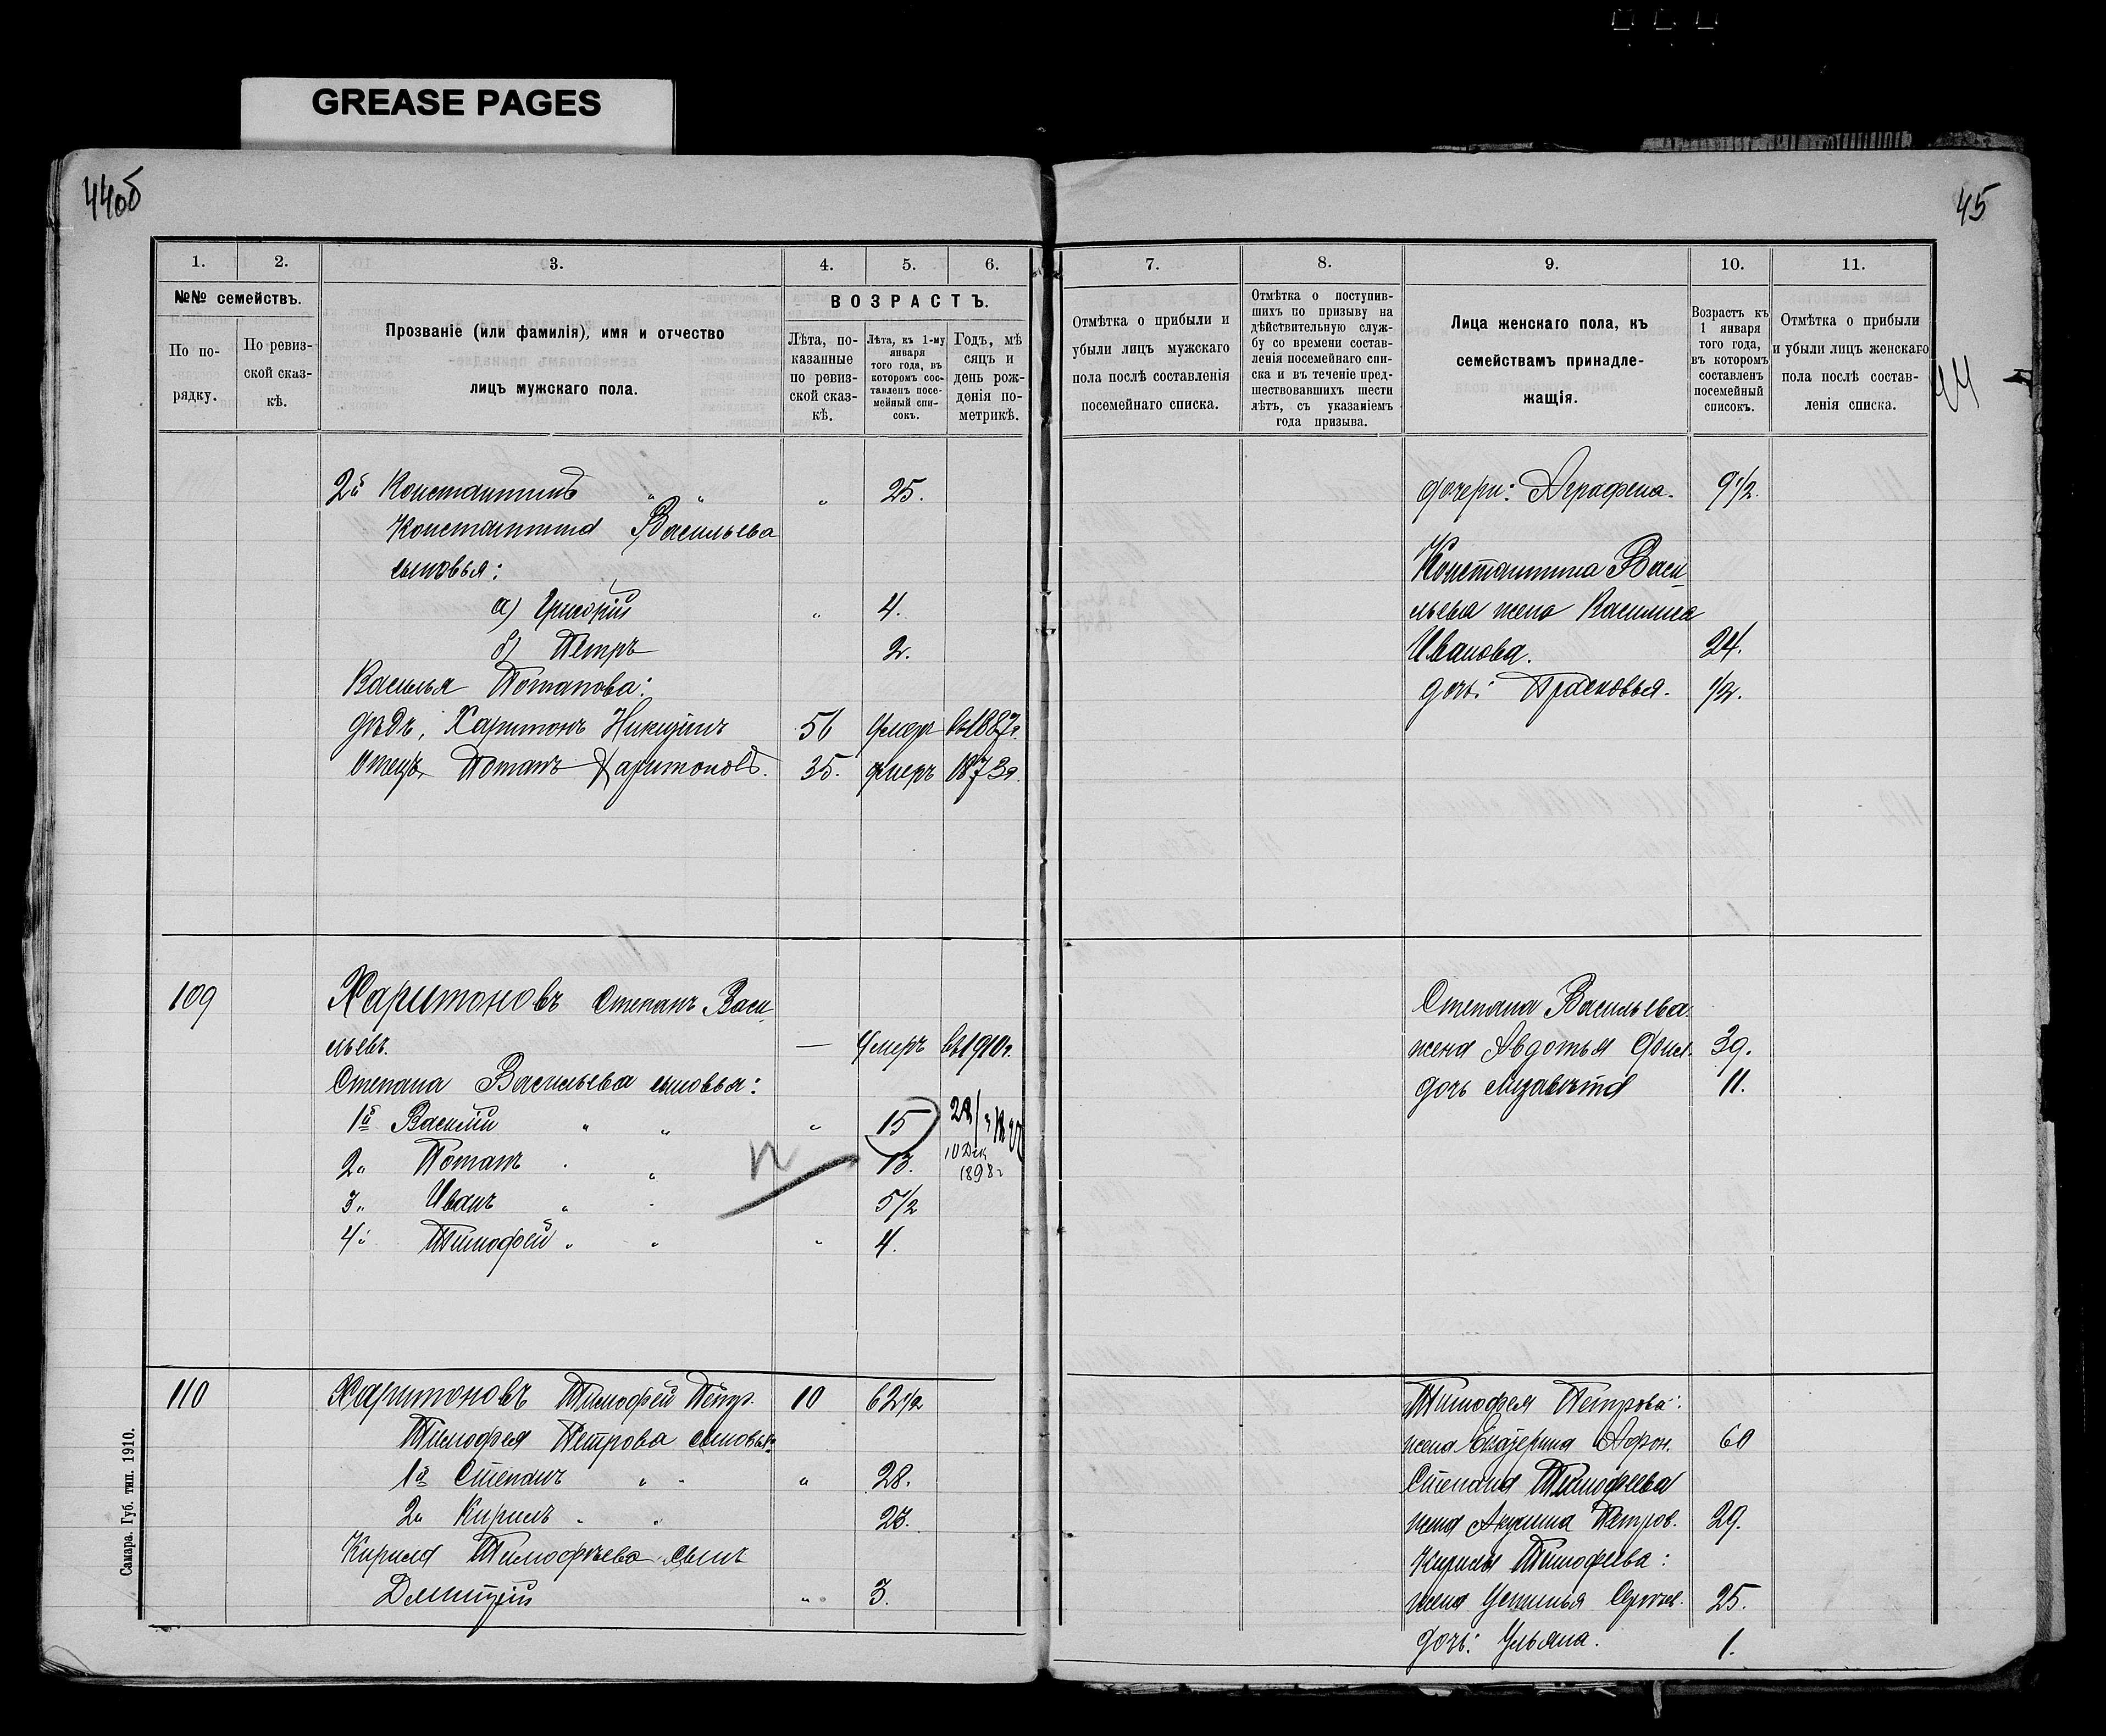 GREASE PAGES
44об
45
1.
2.
3.
4.
5.
6.
№№ семействъ.
ВОЗРАСТЪ.
По по-
рядку.
По ревиз-
ской сказ-
кѣ.
Прозваніе (или фамилія), имя и отчество
лицъ мужскаго пола.
Лѣта, по-
казанные
по ревиз-
ской сказ-
кѣ.
Лѣта, къ 1-му
января
того года, въ
которомъ сос-
тавленъ посе-
мейный спи-
сокъ.
Годъ, мѣ
сяцъ и
день рож-
денія по-
метрикѣ.
2й Константинъ " " " 25.
Константина Васильева
сыновья:
а) Григорій " 4.
б) Петръ 2.
Василья Потапова:
дѣдъ, Харитонъ Никитинъ 56 умеръ въ 1887г.
Отецъ, Потапъ Харитоновъ. 35. умеръ 1873г.
109 Харитоновъ Степанъ Васи-
льевъ. — Умеръ въ 1910г.
Степана Васильева сыновья:
1й Василій " " " 15
2" Потапъ " " 13. 10 Дек
1898г
3" Иванъ " " 5 1/2
4" Тимофей " " " 4.
110 Харитоновъ Тимофей Петр. 10 62 1/2
Тимофея Петрова сыновья:
1й Степанъ " " " 28.
2" Кирилъ " " 23.
Кирила Тимофѣева сынъ
Дмитрій " 3.
Самара. Губ. тип. 1910.
7.
8.
9.
10.
11.
Отмѣтка о прибыли и
убыли лицъ мужскаго
пола послѣ составленія
посемейнаго списка.
Отмѣтка о поступив-
шихъ по призыву на
дѣйствительную служ-
бу со времени состав-
ленія посемейнаго спи-
ска и въ теченіе пред-
шествовавшихъ шести
лѣтъ, съ указаніемъ
года призыва.
Лица женскаго пола, къ
семействамъ принадле-
жащія.
Возрастъ къ
1 января
того года,
въ которомъ
составленъ
посемейный
списокъ.
Отмѣтка о прибыли
и убыли лицъ женскаго
пола послѣ состав-
ленія списка.
44
дочери: Аграфена. 9 1/2.
Константина Васи-
льева жена Василиса
Иванова. 24.
дочь: Прасковья. 1/2.
Степана Васильева
жена Авдотья 39.
дочь Лизавѣта 11.
Тимофея Петрова:
жена Екатерина Афон. 60
Степана Тимофеева
жена Акулина Петров. 29.
Кирилы Тимофеева:
жена Устинья Сергѣев. 25.
дочь: Ульяна. 1.